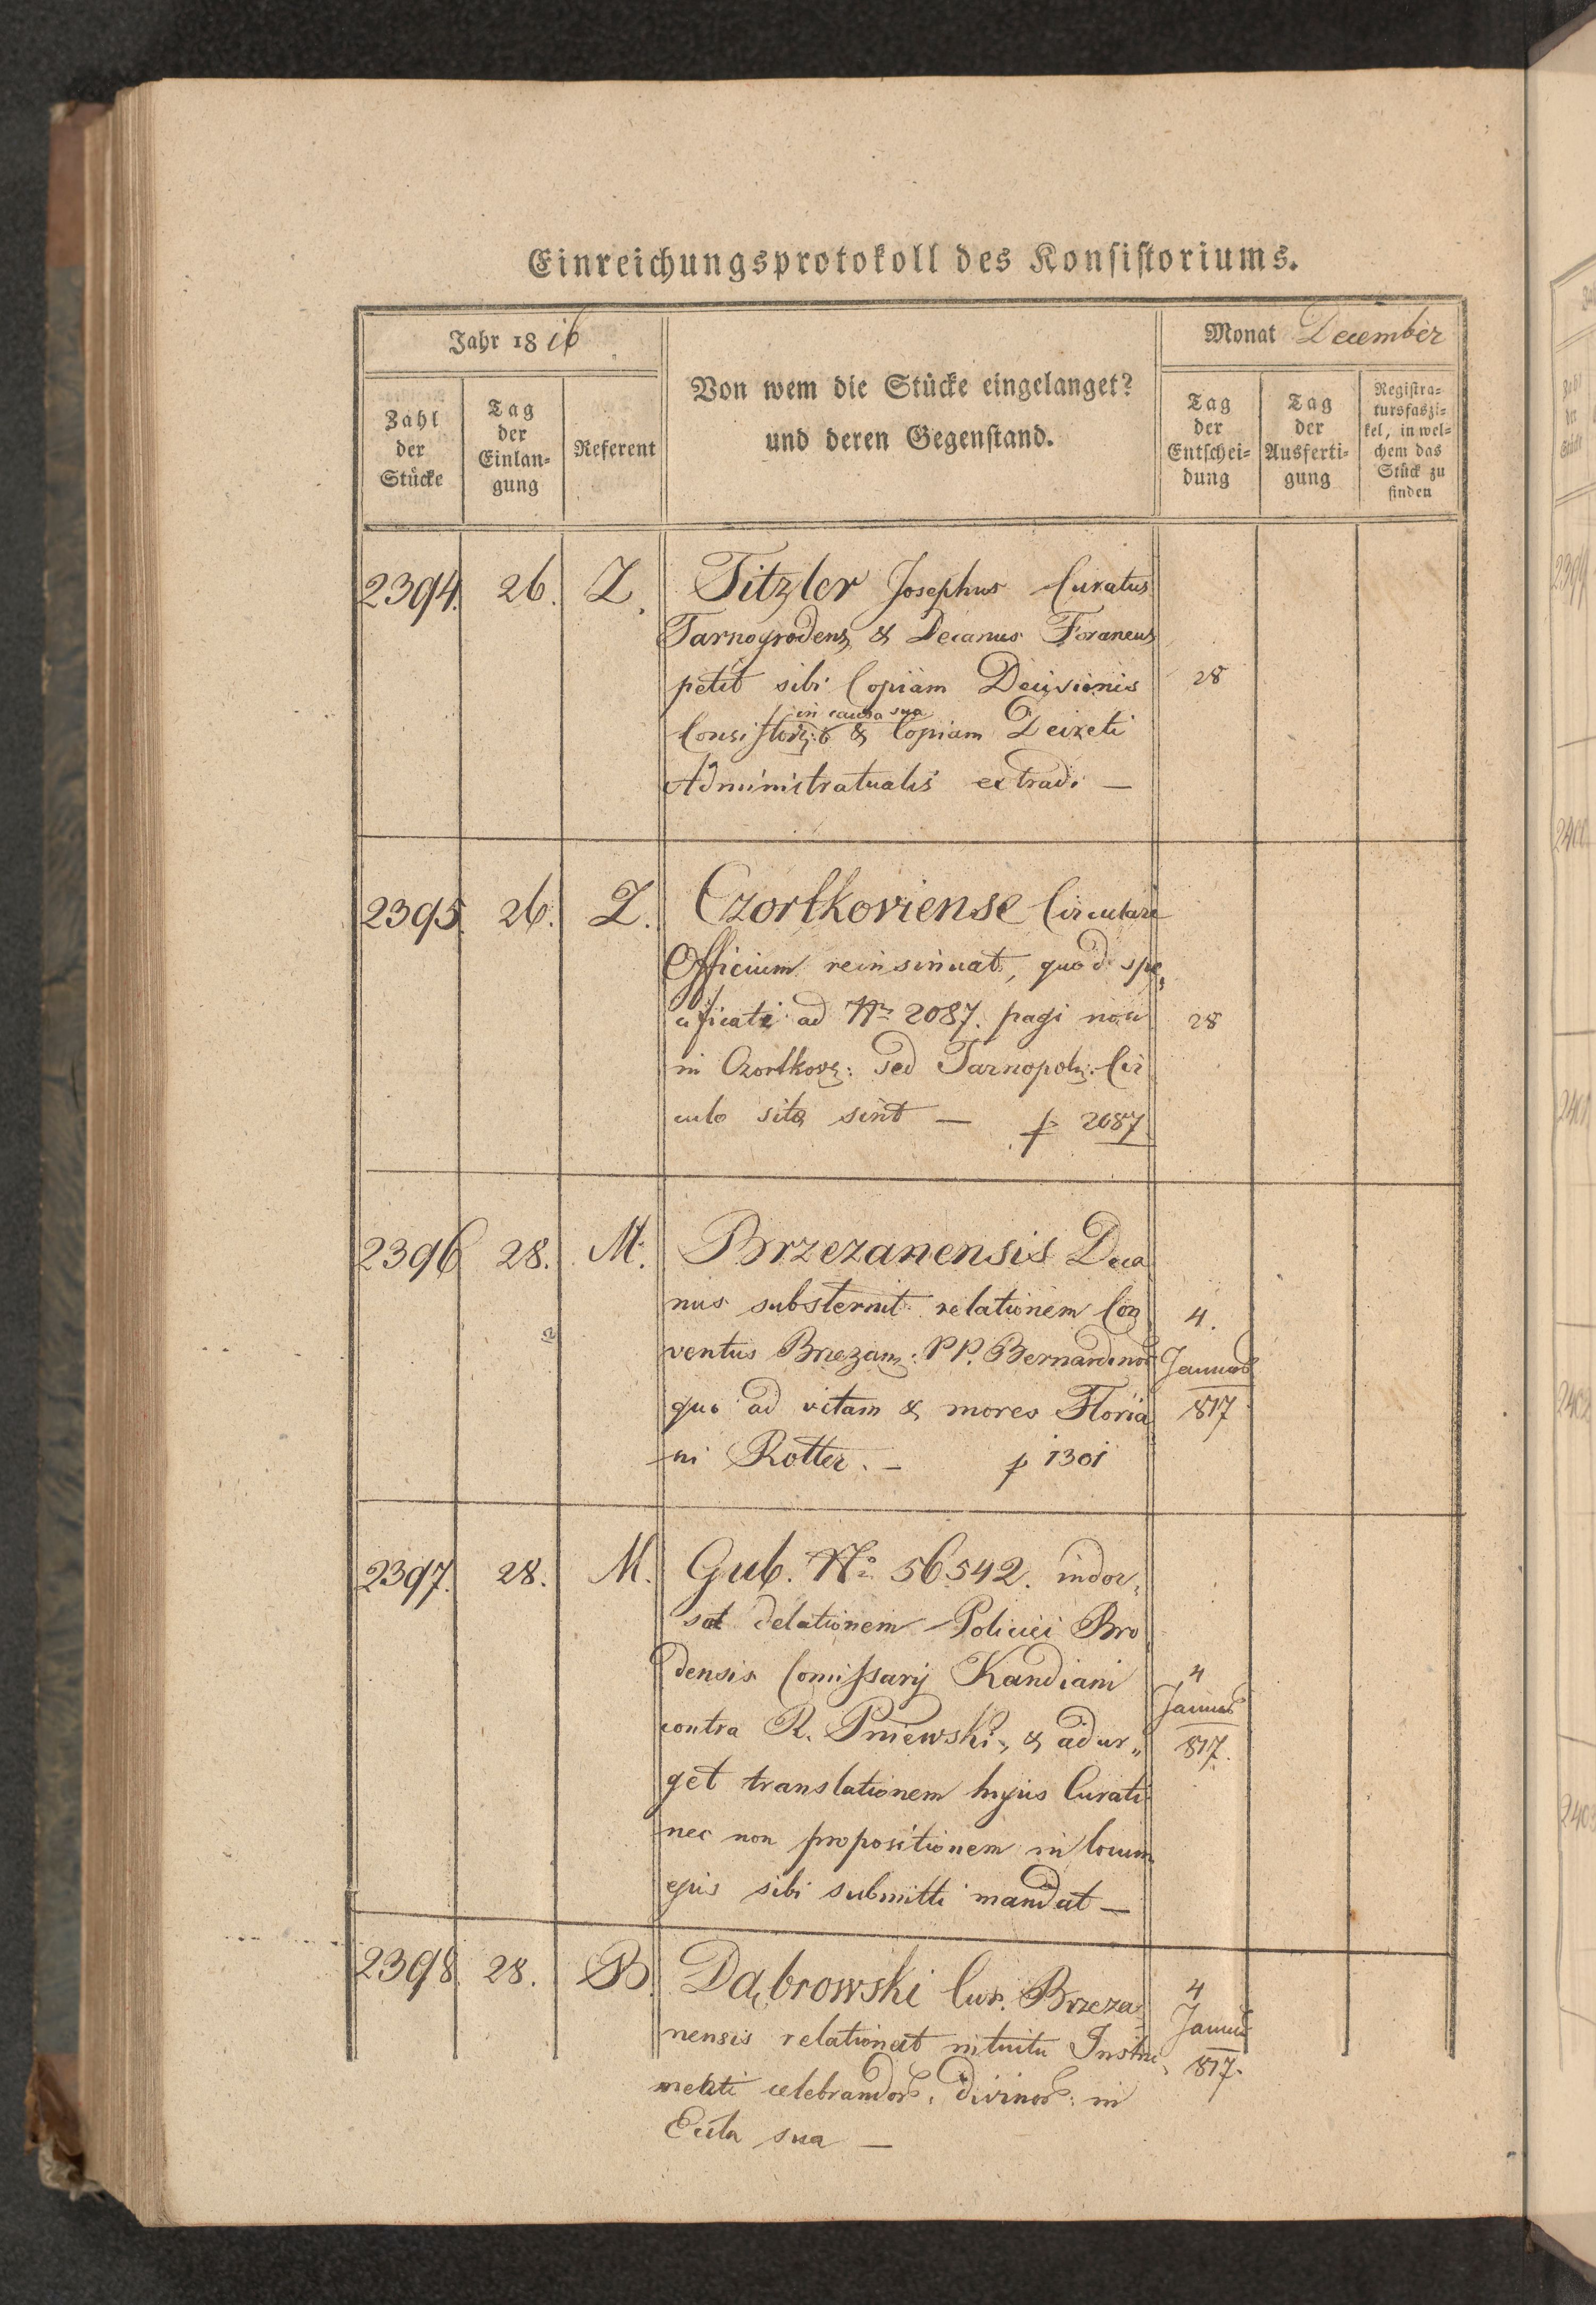 Einreichungsprotokoll des Konsistoriums.
Jahr 1816
Von wem die Stücke eingelanget?
und deren Gegenstand.
Monat December
Zahl
der
Stücke
Tag
der
Einlan-
gung
Referent
Tag
der
Entschei-
dung
Tag
der
Ausferti-
gung
Registra-
tursfaszi-
kel, in wel-
chem das
Stück zu
finden
2394. 26. Z. Titzler Josephus Curatus
Tarnogrodens & Decanus Foraneus
petit sibi Copiam Decisionis 28
in causa sua
& Copiam Decreti
Administratualis extradi —
2395. 26. Z. Czortkoviense Circulare
Officium reinsinuat, quod spe„
cificati ad Nr 2087. pagi non 28
in Czortkov: sed Tarnopol: Cir
culo sita sint — p 2087
2396 28. M. Brzezanensis Deca
nus substernit relationem Con 4.
ventus Brzezan: PP. Bernardinor Januar
quo ad vitam & mores Floria 817
ni Rotter. — p 1301
2397. 28. M. Gub. No 56542. indor„
sat delationem Policiei Bro
densis Comissarij Kandiani 4
Januar
contra R. Pniewski, & adur„ 817.
get translationem hujus Curati
nec non propositionem in locum
ejus sibi submitti mandat —
2398. 28. B. Dąbrowski Cur. Brzeza 4
nensis relationat intuitu Instru Januar
menti celebrandor: divinor: in 817.
Eccla sua —